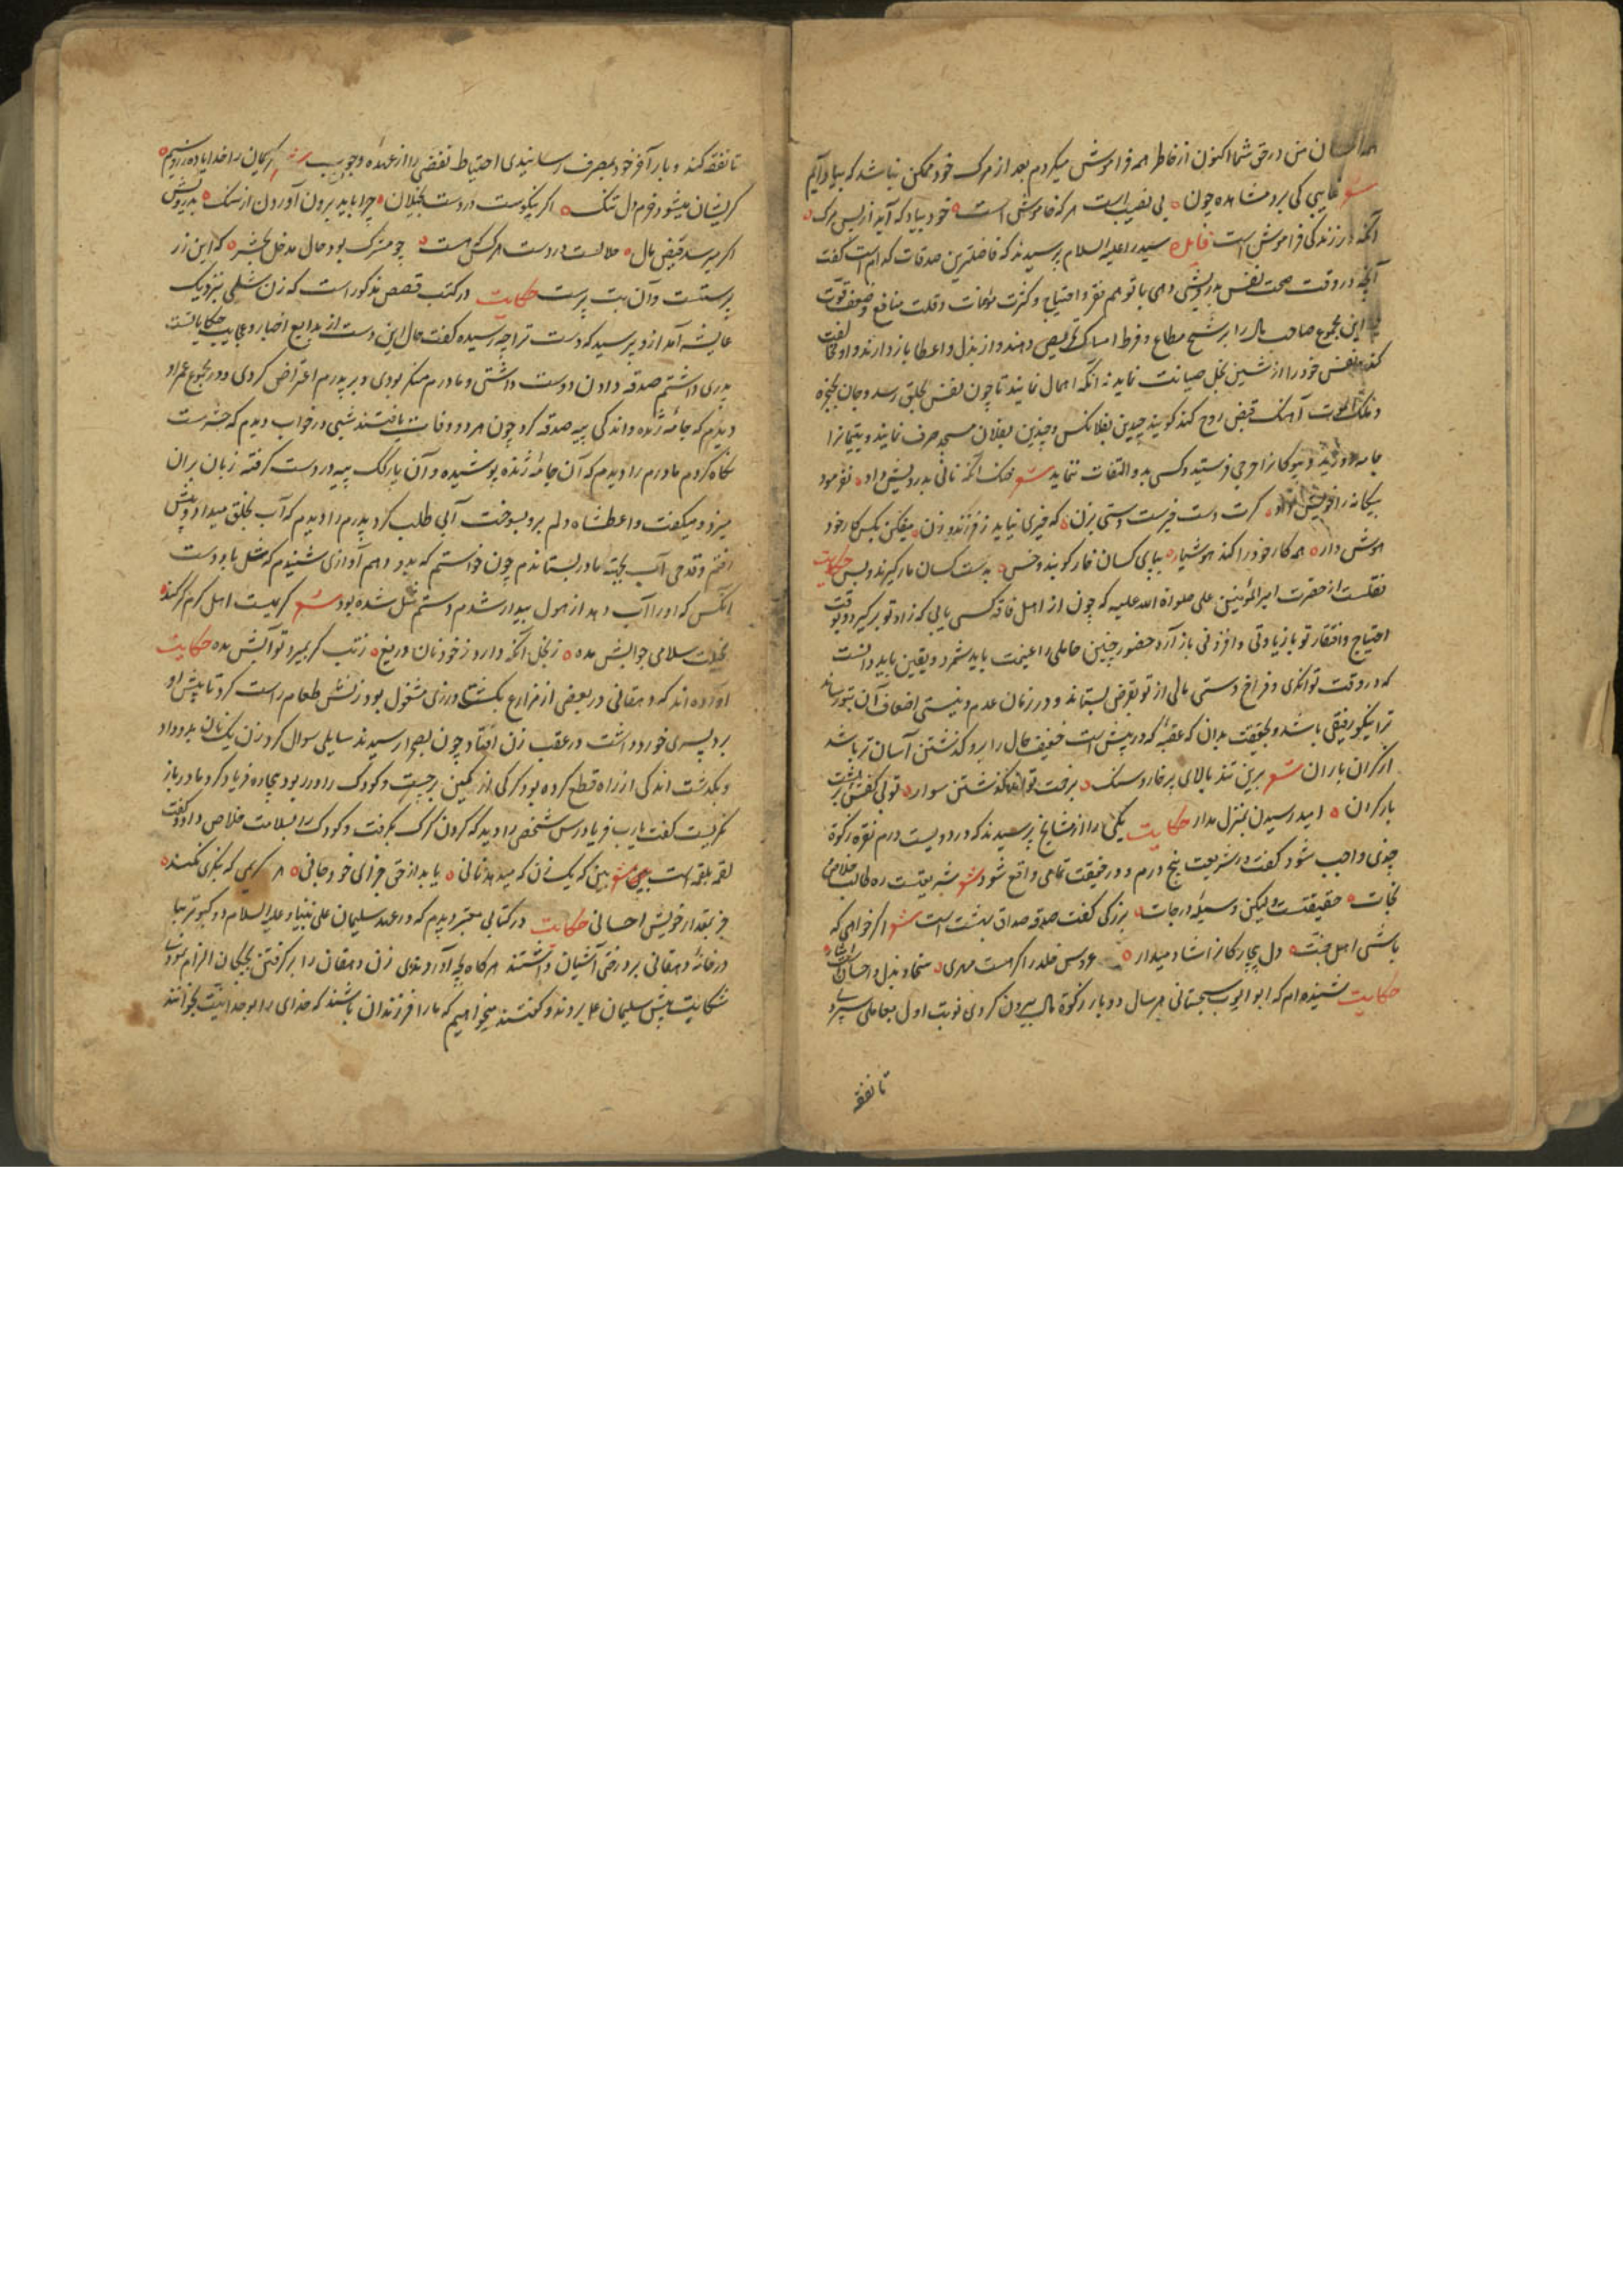 من در حق شما اکنون از خاطر همه فراموش میکردم بعد از مرک خود ممکن نباشد که بیاد آیم
شعر غایبی کی برد مشاهده چون بی نصیب است هر که خاموش است خود بیاد که آید از پس مرک
آنکه در زندکی فراموش است سید را علیه السلام پرسیدند که فاضلترین صدقات کدام است کفت
آنچه در وقت صحت نفس بدرویشی دهی با توهم فقر و احتیاج و کثرت مؤنات و قلت منافع و ضعف قوت
این مجموع صاحب مال را بر شح مطاع و فرط امساک تحریص دهند و از بذل و اعطا باز دارند و او مخالفت
کند و نفس خود را از شین بخل صیانت نماید نه آنکه اهمال نمایند تا چون نفس بحلق رسد و جان بحنجره
و ملک الموت آهنک قبض روح کند کویند چندین بفلانکس و چندین بفلان مسجد صرف نمایند و یتیمانرا
جامه دوزید و بیوکانرا خرجی فرستید و کسی بدو التفات ننماید شعر خنک آنکه نانی بدرویش داد نفرمود
بیکانه را خویش داد کرت دست خیرست دستی بزن که خیری نیاید ز فرزند و زن میفکن بکس کار خود
هوش دار همه کار خود را کند هوشیار بپای کسان خار کوبند و خس بدست کسان مار کیرند و بس حکایت
نقلست از حضرت امیر المؤمنین علی صلواة الله علیه که چون از اهل فاقه کسی یابی که زاد تو برکیرد و بوقت
احتیاج و افتقار تو با زیادتی و افزونی باز آرد حضور چنین حاملی را غنیمت باید شمرد و یقین باید دانست
که در وقت توانکری و فراخ دستی مالی از تو بقرض بستاند و در زمان عدم و نیستی اضعاف آن بتو رساند
ترا نیکو رفیقی باشد و بحقیقت بدان که عقبه که در پیش است خفیف حال را برو کذشتن آسان تر باشد
از کران باران شعر برین تند بالای پر خار و سنک برفت تواند کذشتن سوار تو بی کفش بر پشت
بار کران امید رسیدن بمنزل مدار حکایت یکی را از مشایخ پرسیدند که در دویست درم نقره زکوة
چونی واجب شود کفت در شریعت پنج درم و در حقیقت تمامی واقع شود شعر شریعتست ره طالب خلاصی
نجات حقیقتست ولیکن وسیله درجات بزرکی کفت صدقه صداق بهشت است شعر اکر خواهی که
باشی اهل جنت دل بیچارکانرا شاد میدار عروس خلد را اکر هست مهری سخا و بذل و احسانست
حکایت شنیده ام که ابو ایوب سجستانی هر سال دو بار زکوة مال بیرون کردی نوبت اول بعاملی سپردی
تا نفقه
تا نفقه کند و بار آخر خود بمصرف رسانیدی احتیاط تفضی را از عهده وجوب کریمان را خدایا ده زر و سیم
کریشان میشود خرم دل تنک اکر نیکوست در دست بخیلان چرا باید برون آوردن از سنک بدرویش
اکر میرسد قبض مال حلالست در دست هر کس که هست چو مشرک بود حال مدخل بحشر که این زر
پرستست و آن بت پرست حکایت در کتب قصص مذکور است که زن شلی نزدیک
عایشه آمد ازو پرسید که دست ترا چه رسیده کفت حال این دست از بدایع اخبار و عجایب حکایاتست
پدری داشتم صدقه دادن دوست داشتی و مادرم منکر بودی و بر پدرم اعتراض کردی و در مجموع عمر او
ندیدم که جامۀ ژنده و اندکی پیه صدقه کرد چون هر دو وفات یافتند شبی در خواب دیدم که حشرست
نکاه کردم مادرم را دیدم که آن جامۀ ژنده پوشیده و آن پارکک پیه در دست کرفته زبان بر آن
میزد و میکفت واعطشاه دلم برو بسوخت آبی طلب کرد پدرم را دیدم که آب بخلق میداد پیش
رفتم و قدحی آب بجهة مادر بستاندم چون خواستم که بدو دهم آوازی شنیدم که شل باد دست
آنکس که او را آب دهد از هول بیدار شدم دستم شل شده بود شعر کریست اهل کرم کر کند
بخیلت سلامی جوابش مده ز بخل آنکه دارد ز خود نان دریغ ز تب کر بمیرد تو آبش مده حکایت
آورده اند که دهقانی در بعضی از مزارع بکشت ورزی مشغول بود زنش طعام راست کرد تا پیش او
برد پسری خورد داشت در عقب زن افتاد چون بصحرا رسیدند سایلی سوال کرد زن یک نان بدو داد
و بکذشت اندکی از راه قطع کرده بود کرکی از کمین برجست و کودک را در ربود بیچاره فریاد کرد مادر باز
نکریست کفت یا رب فریاد رس شخصی را دید که کردن کرک بکرفت و کودک را بسلامت خلاص داد و کفت
لقمه بلقمه است شعر ببین که یک زن که میدهد نانی بیابد از حق جزای خود جانی هر کریمی که نیکی نکند
جز بمقدار خویش احسانی حکایت در کتابی معتبر دیدم که در عهد سلیمان علی نبینا و علیه السلام دو کبوتر بیا
در خانۀ دهقانی بر درختی آشیان داشتند هرکاه بچه آوردندی زن دهقان را بر کرفتن بچکان الزام نمودی
شکایت پیش سلیمان ع بردند و کفتند میخواهیم که ما را فرزندان باشند که خدای را بوحدانیت بخوانند